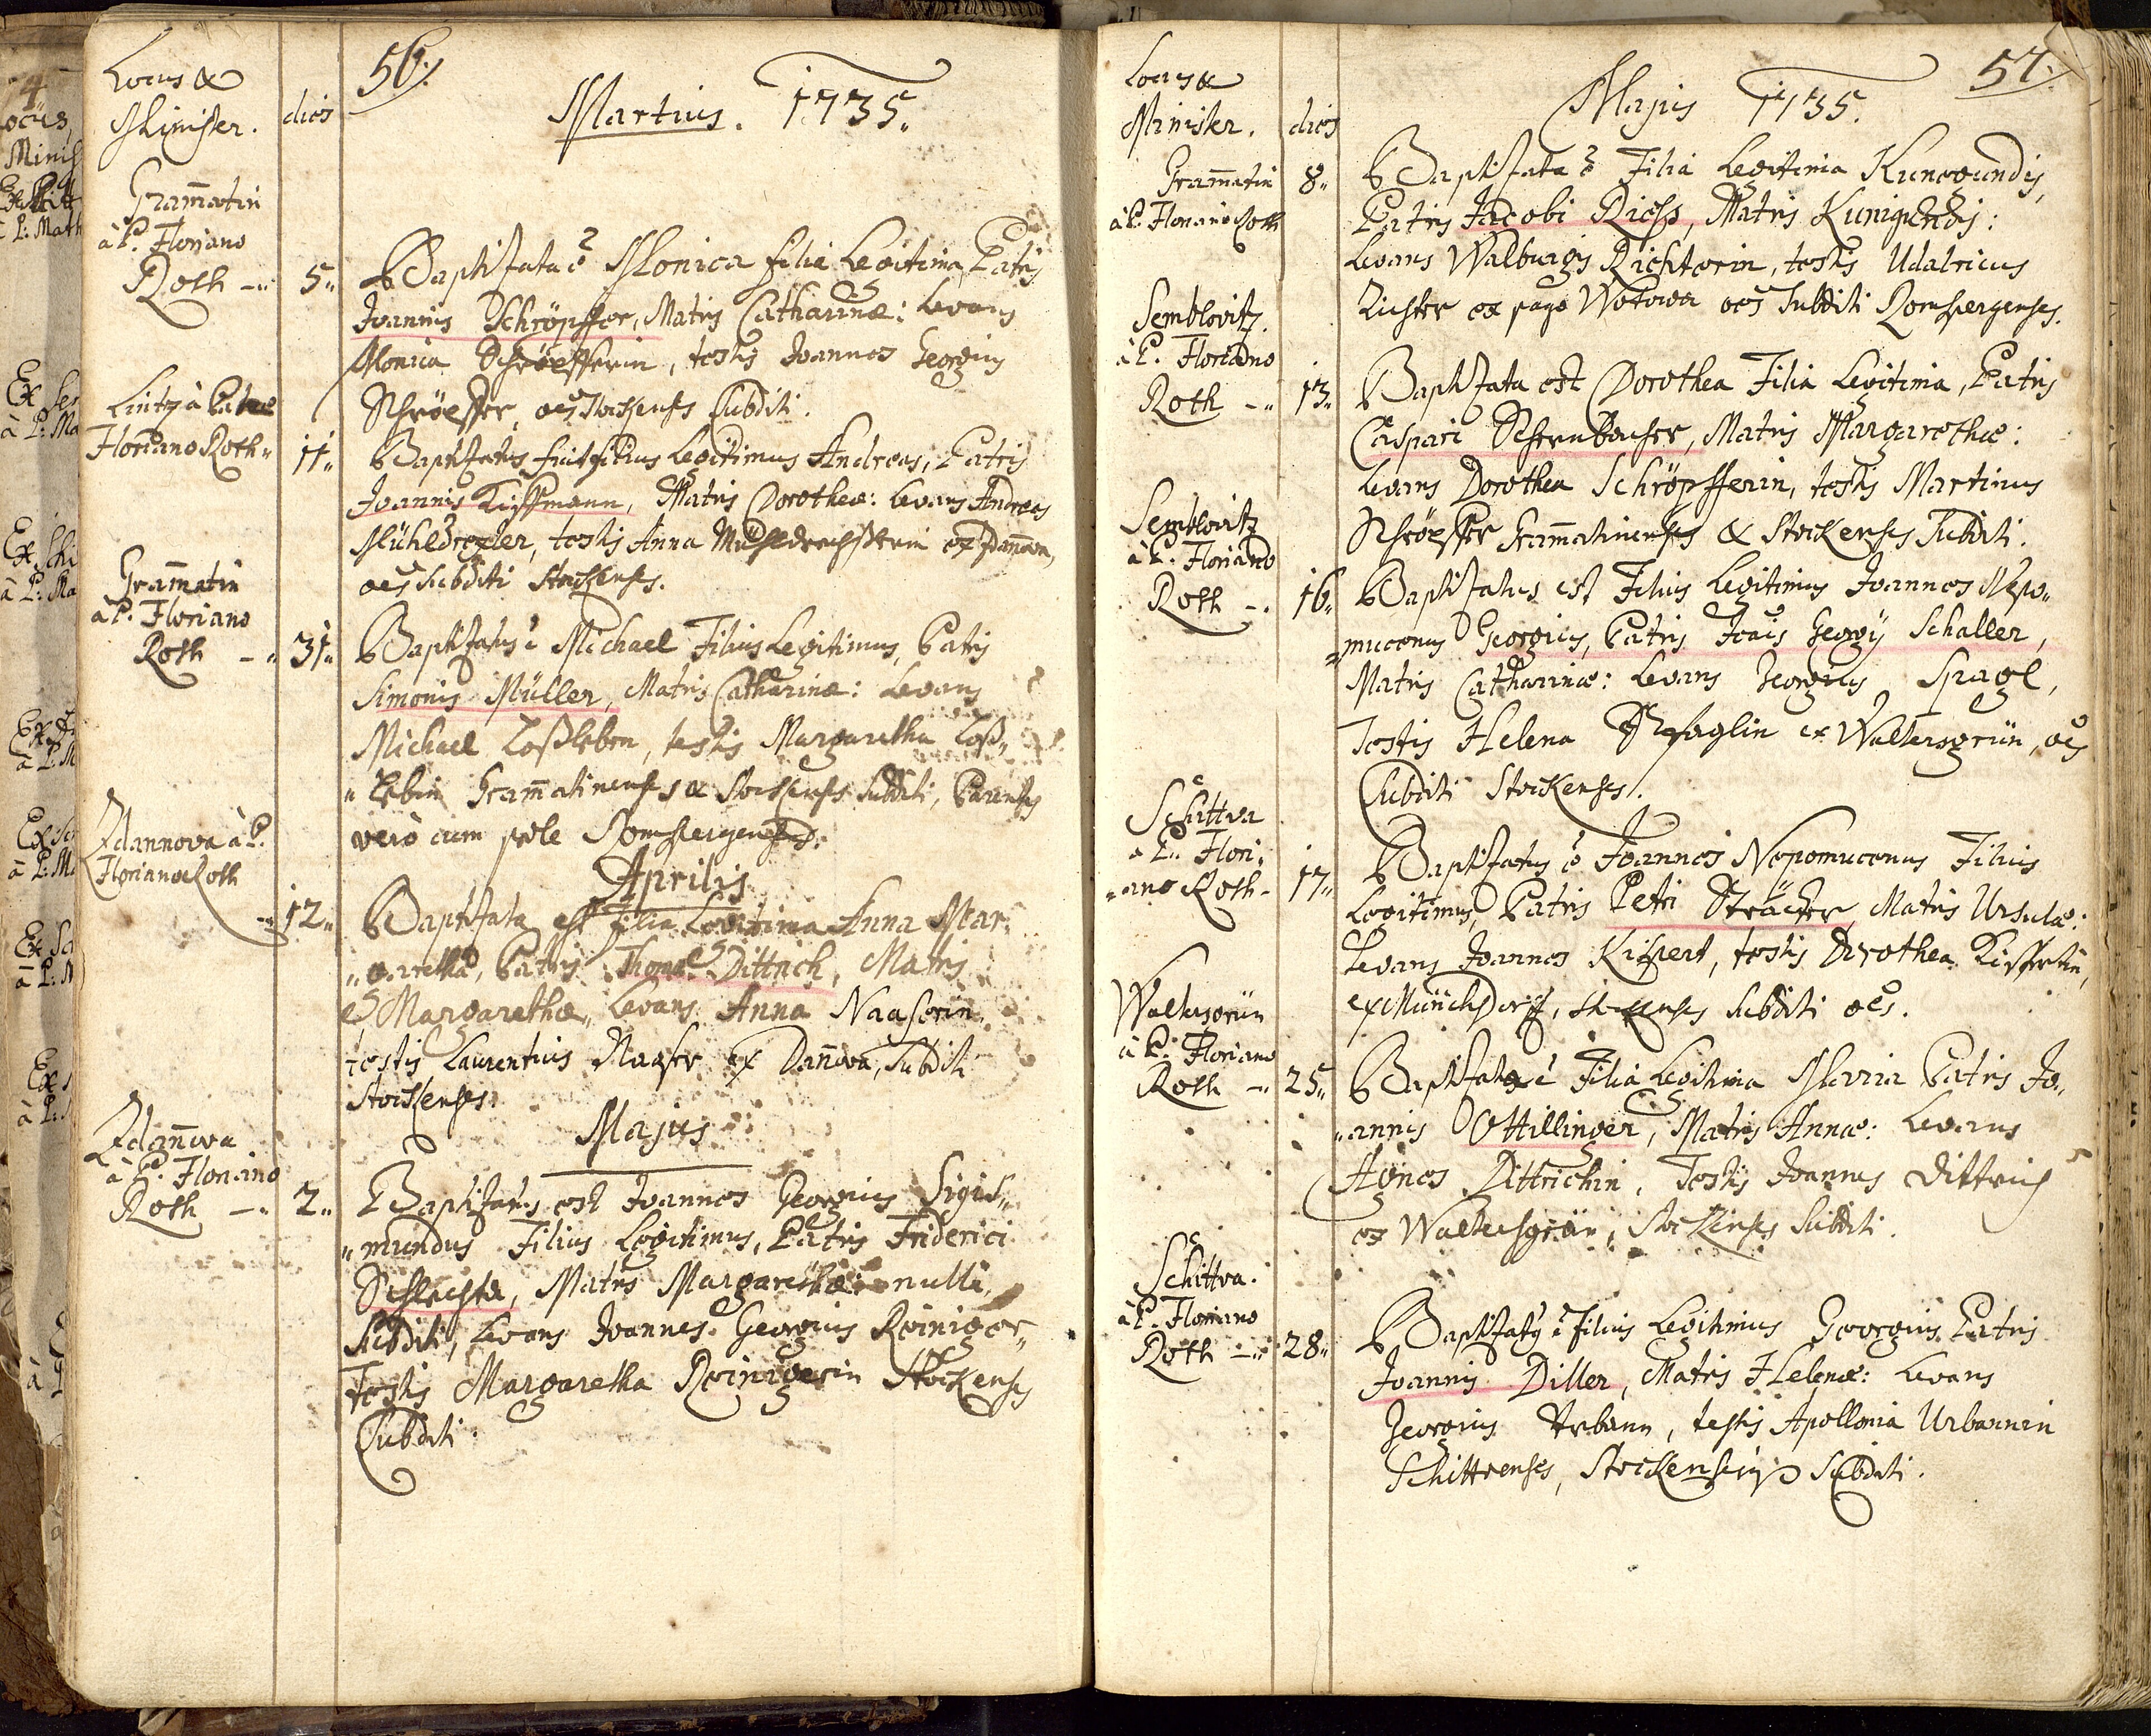 56.
Locus &
Minister.
dies
Martius. 1735.
Gram̄atin
à P. Floriano
Roth -
5.
Baptisata ē Monica filia Legitima, Patris
Joannis Schröpffer, Matris Catharinæ: Levans
Monica Schröpfferin, testis Joannes Georgius
Schröpffer, oēs Stockenses Subditi.
Lintz à Patre
Floriano Roth
11.
Baptisatus fuit filius Legitimus Andreas, Patris
Joannis Kiffmann, Matris Dorotheæ: Levans Andreas
Mühldrexler, testis Anna ex Zdan̄ova,
oēs Subditi Stockenses.
Gram̄atin
à P. Floriano
Roth -
31.
Baptisatus ē Michael Filius Legitimus, Patris
Simonis Müller, Matris Catharinæ: Levans
Michael Loßleben, testis Margaretha Loß-
lebin Gram̄atinenses & Stockenses Subditi, Parentes
verò cum prole Ronspergenses.
Aprilis
Zdannova à P.
Floriano Roth
12.
Baptisata est filia Legitima Anna Mar-
garetha, Patris Thomæ Dittrich, Matris
Margarethæ, Levans Anna Naaserin
testis Laurentius Naaser ex Dan̄ova, Subditi
Stockenses.
Majus
Zdan̄ova
à P. Floriano
Roth -
2.
Baptisatus est Joannes Georgius Sigis-
mundus Filius Legitimus, Patris Friderici
Schlechta, Matris Margarethæ: nulli
Subditi, Levans Joannes Georgius Reiniger
Testis Margaretha Reinigerin Stockenses
Subditi:
57.
Locus &
Minister.
dies
Majus 1735.
Gram̄atin
à P. Floriano Roth
8.
Baptisata ē Filia Legitima Kunegundis,
Patris Jacobi Riess, Matris Kunigundis:
Levans Walburgis Richterin, testis Udalricus
Richter ex pago Wotowa oēs Subditi Ronspergenses.
Semblovitz.
à P. Floriano
Roth -
13.
Baptisata est Dorothea Filia Legitima, Patris
Caspari Schernbauher, Matris Margarethæ:
Levans Dorothea Schröpfferin, testis Martinus
Schröpffer Gram̄atinenses & Stockenses Subditi.
Semblovitz
à P. Floriano
Roth -
16.
Baptisatus est Filius Legitimus Joannes Nepo-
mucenus Georgius, Patris Joāis Georgij Schaller,
Matris Catharinæ: Levans Georgius Spagl,
Testis Helena Spaglin ex Waltersgrün, oēs
Subditi Stockenses.
Schittva
à P. Flori-
ano Roth -
17.
Baptisatus ē Joannes Nepomucenus Filius
Legitimus, Patris Petri Strächer, Matris Ursulæ:
Levans Joannes Kippert, testis Dorothea Kippertin,
ex Münchsdorff, Stockenses Subditi oēs.
Waltersgrün
à P. Floriano
Roth -
25.
Baptisata ē Filia Legitima Maria Patris Jo-
annis Ottillinger, Matris Annæ: Levans
Agnes Dittrichin, Testis Joannes Dittrich
ex Waltersgrün, Stockenses Subditi.
Schittva.
à P. Floriano
Roth -
28.
Baptisatus ē filius Legitimus Georgius Patris
Joannis Diller, Matris Helenæ: Levans
Georgius Urbann, testis Apollonia Urbannin
Schittvenses, Stockenses Subditi.